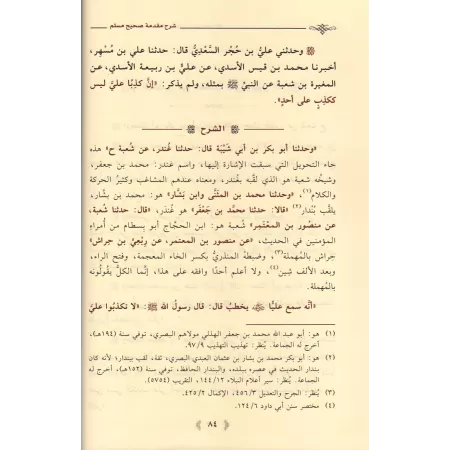 شرح مقدمة صحيح مسلم
وحدثني عليُّ بن حُجْر السَّعْديُّ قال: حدثنا علي بن مُسْهِر،
أخبرنا محمد بن قيس الأسدي، عن عليِّ بن ربيعة الأسدي، عن
المغيرة بن شعبة عن النبيِّ ﷺ بمثله، ولم يذكر: «إنَّ كذِبًا عليَّ ليس
ككذِبٍ على أحدٍ».
الشرح
«وحدثنا أبو بكر بن أبي شَيْبَة قال: حدثنا غُندَر، عن شعبة ح» هذه
حاء التحويل التي سبقت الإشارة إليها، واسم غندر: محمد بن جعفر،
وشيخُه شعبة هو الذي لقَّبه بغُندَر، ومعناه عندهم المشاغب وكثيرُ الحركة
والكلام(١)، «وحدثنا محمد بن المثنَّى وابن بشَّار» هو: محمد بن بشار،
يلقب بُنْدار(٢) «قالا: حدثنا محمَّد بن جَعْفَر» هو غُندَر، «قال: حدثنا شعبة،
عن منصُور بن المعْتَمِر» شُعبة هو: ابن الحجَّاج أبو بِسطام من أُمراءِ
المؤمنين في الحديث، «عن منصور بن المعتمر، عن رِبْعيِّ بن حراش»
حِراش بالمُهملة(٣)، وضبطَه المنذريُّ بكسر الخاء المعجمة، وفتح الراء،
وبعد الألف شِين(٤)، ولا أعلم أحدًا وافقه على هذا، إنَّما الكلُّ يقُولُونه
بالمُهملة.
«أنَّه سمع عليًّا ﵁ يخطبُ قال: قال رسولُ الله ﷺ: «لا تكذبُوا عليَّ
(١) هو: أبو عبد الله محمد بن جعفر الهذلي مولاهم البصري، توفي سنة (١٩٤هـ)،
أخرج له الجماعة. يُنظر: تهذيب التهذيب ٩٧/٩.
(٢) هو: أبو بكر محمد بن بشار بن عثمان العبدي البصري، ثقة، لقب ببندار؛ لأنه كان
بندار الحديث في عصره ببلده، والبندار الحافظ، توفي سنة (٢٥٢هـ)، أخرج له
الجماعة. يُنظر: سير أعلام النبلاء ١٤٤/١٢، التقريب (٥٧٥٤)
(٣) يُنظر: الجرح والتعديل ٤٥٦/٣، الإكمال ٤٢٥/٢.
(٤) مختصر سنن أبي داود ١٢٤/٦.
٨٤